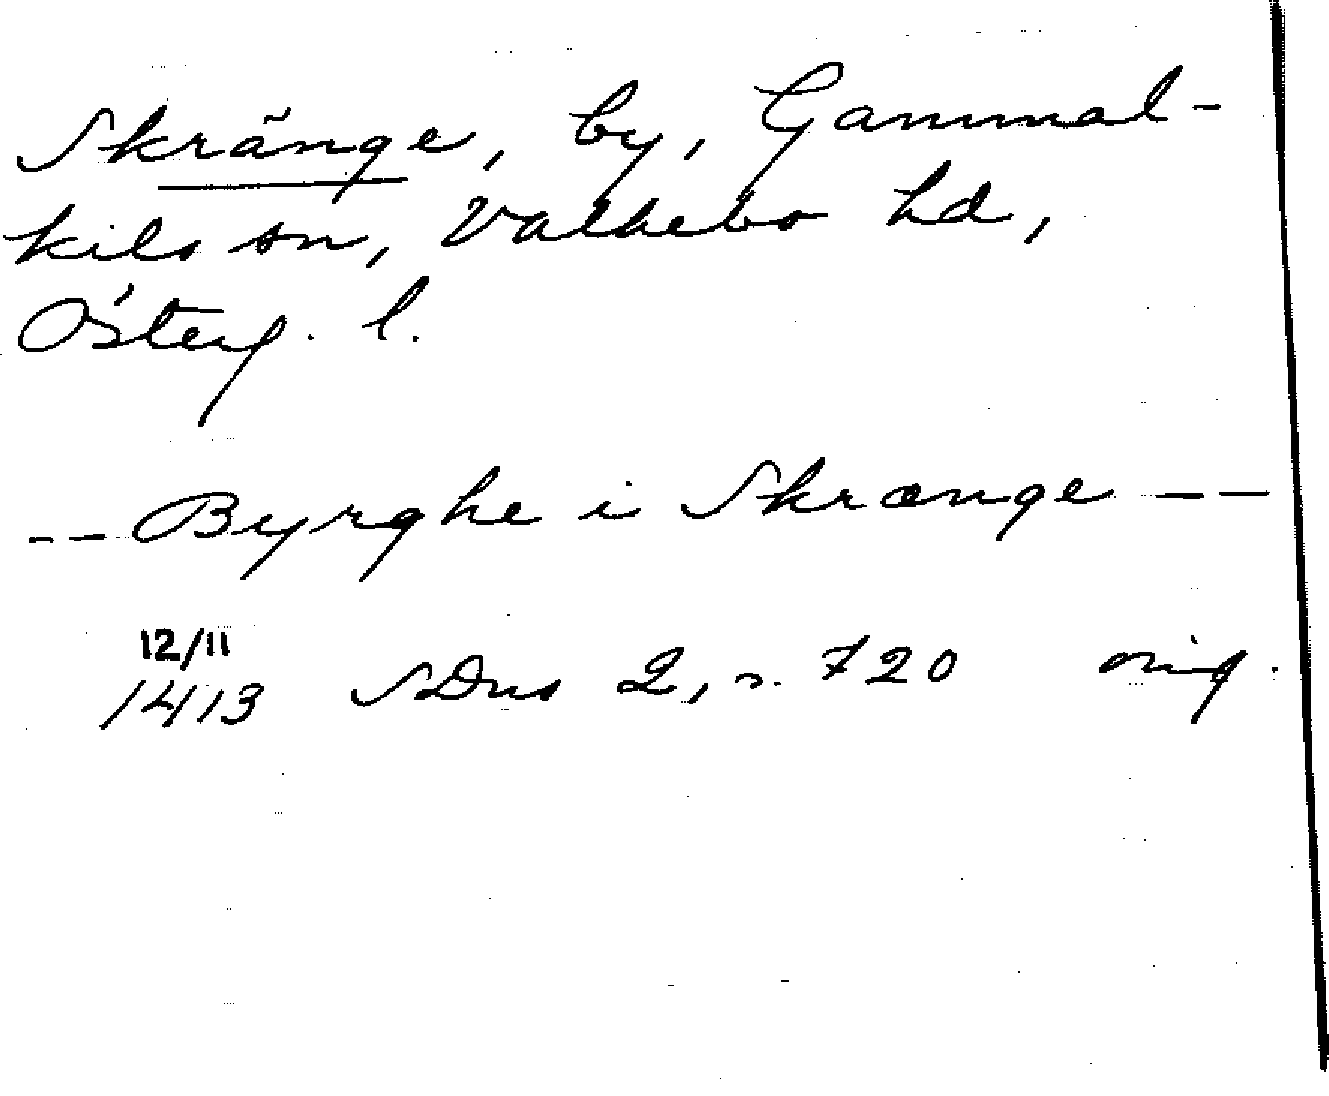 Skränge, by, Gammal-
kils sn, Valkebo hd,
Österg. l.
-- Byrghe i Skrænge --
12/11
1413 SDns 2, s. 720 orig.